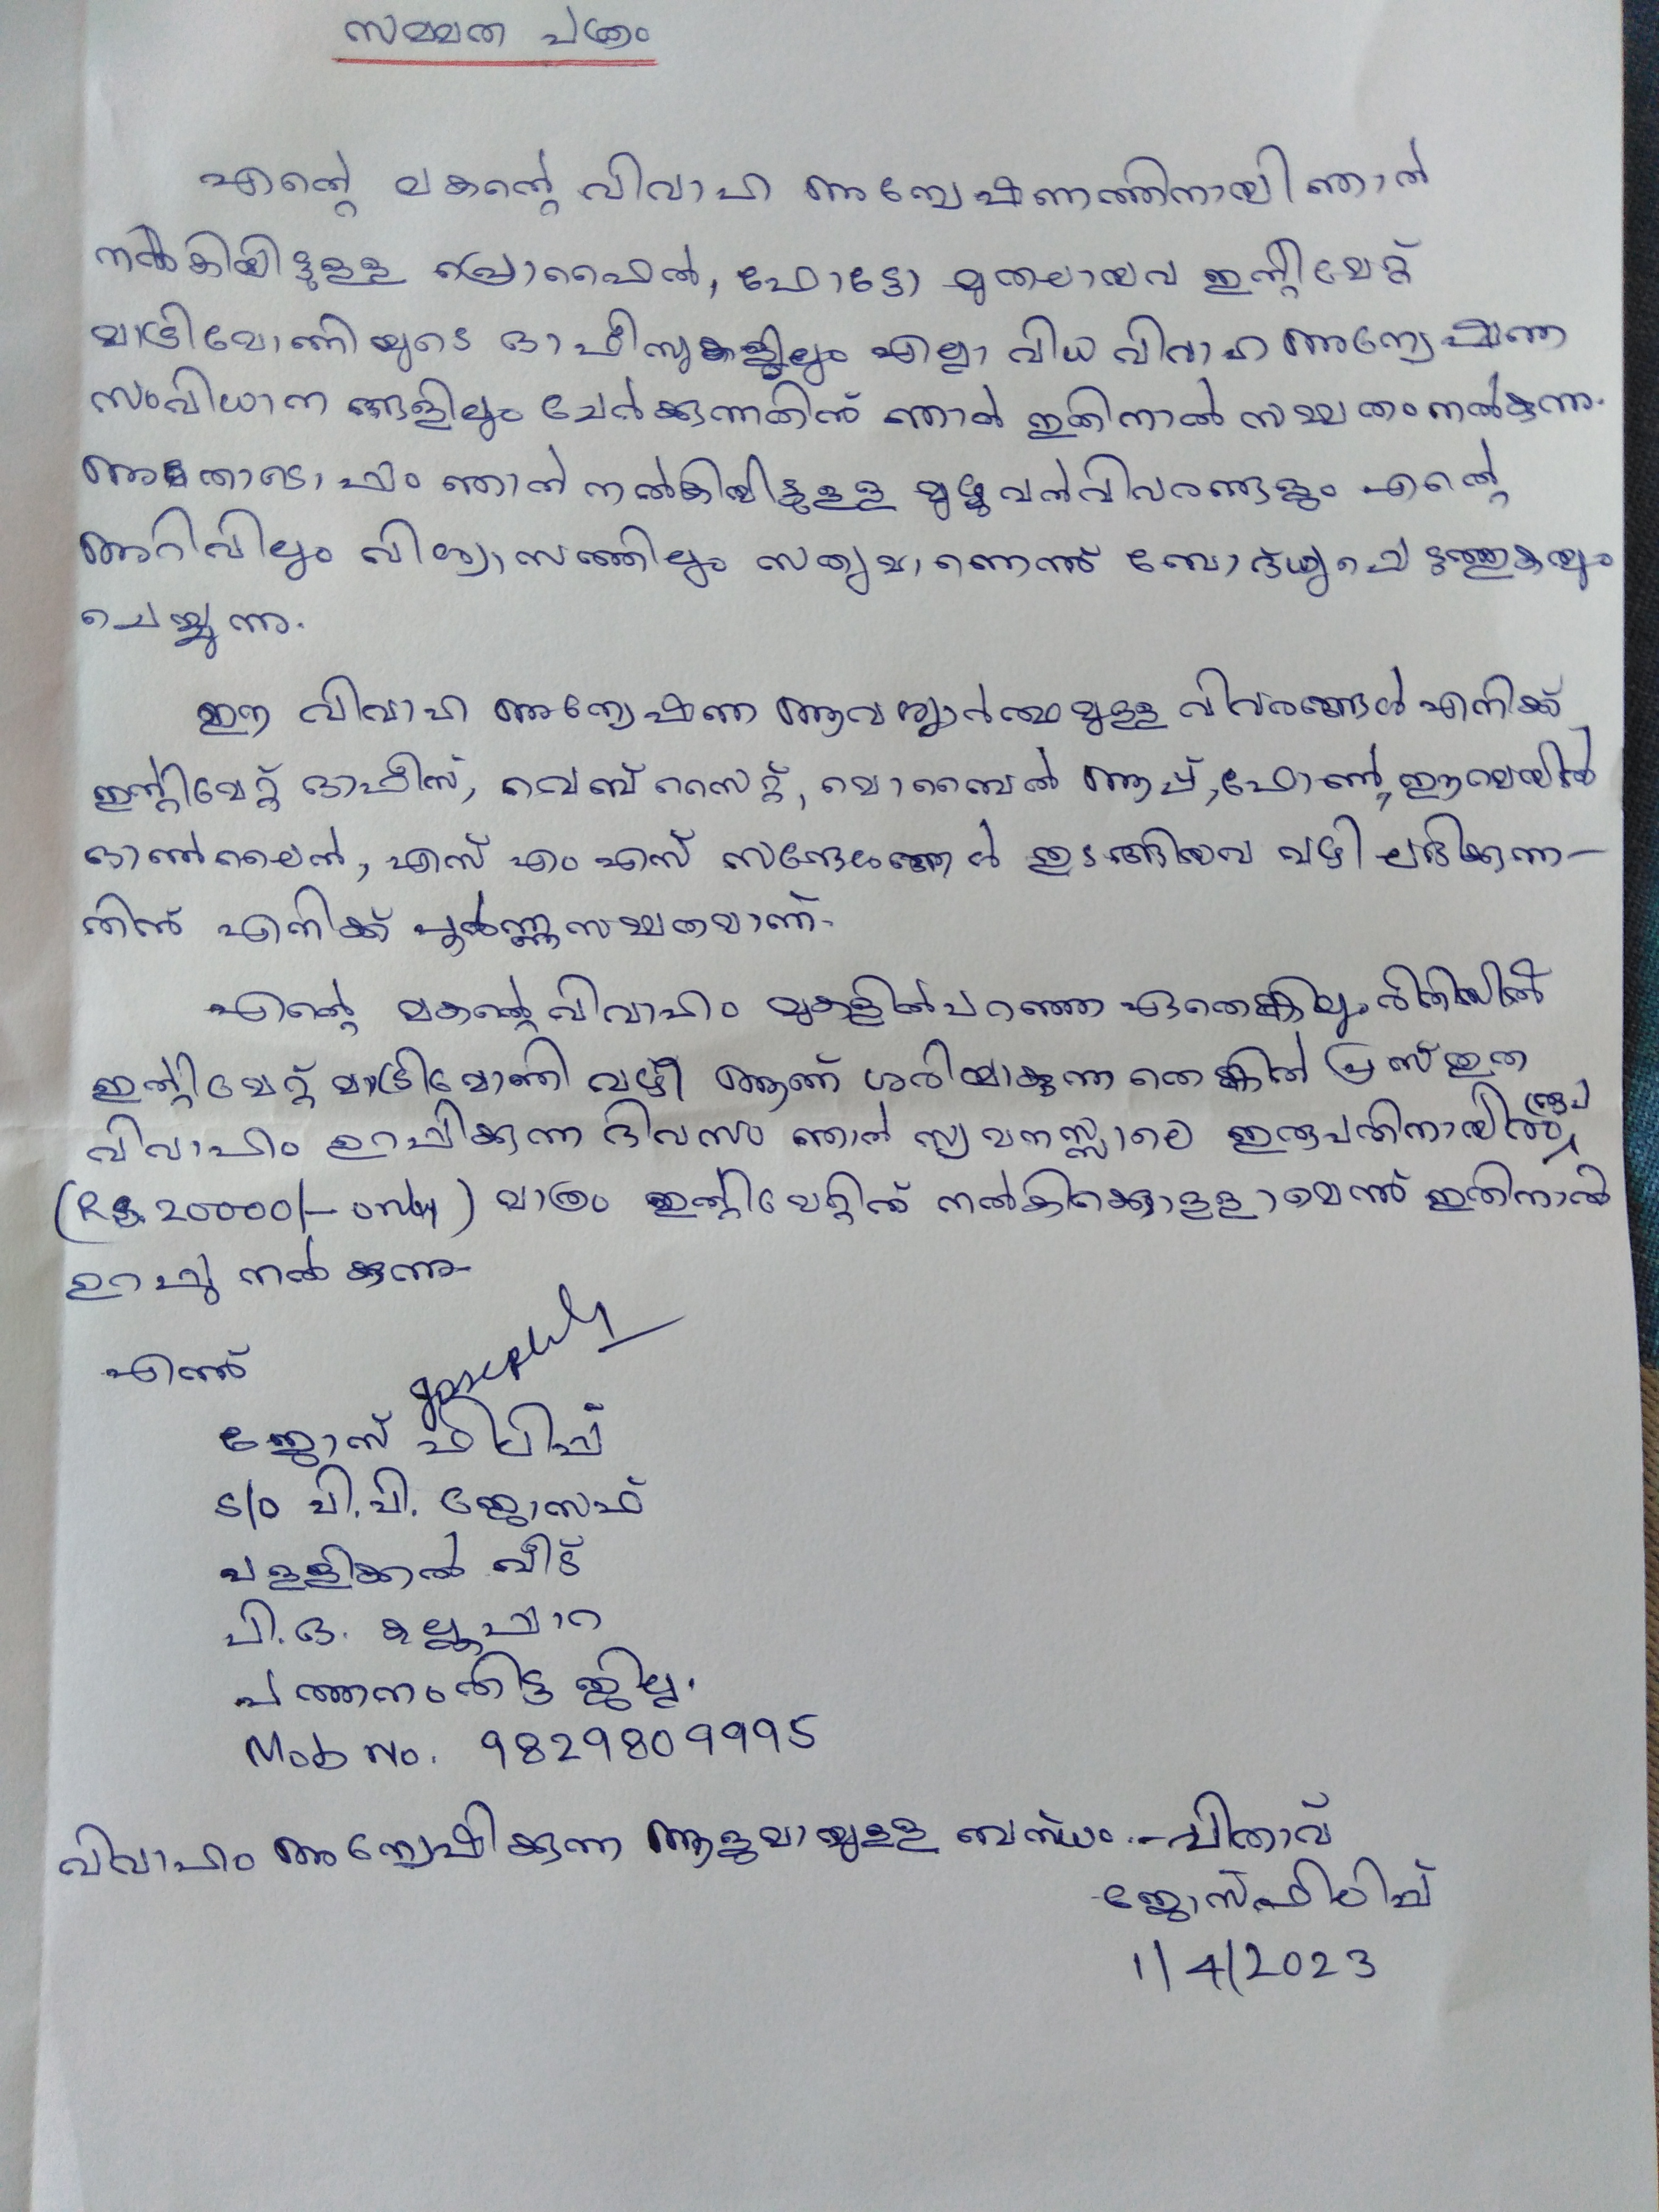 സമ്മത പത്രം
എന്റെ മകന്റെ വിവാഹ അന്വേഷണത്തിനായി ഞാൻ
നൽകിയിട്ടുള്ള പ്രൊഫൈൽ, ഫോട്ടോ മുതലായവ ഇന്റിമേറ്റ്
മാട്രിമോണിയുടെ ഓഫീസുകളിലും എല്ലാ വിധ വിവാഹ അന്വേഷണ
സംവിധാനങ്ങളിലും ചേർക്കുന്നതിന് ഞാൻ ഇതിനാൽ സമ്മതം നൽകുന്നു.
അതോടൊപ്പം ഞാൻ നൽകിയിട്ടുള്ള മുഴുവൻ വിവരങ്ങളും എന്റെ
അറിവിലും വിശ്വാസത്തിലും സത്യമാണെന്ന് ബോദ്ധ്യപ്പെടുത്തുകയും
ചെയ്യുന്നു.
ഈ വിവാഹ അന്വേഷണ ആവശ്യാർത്ഥമുള്ള വിവരങ്ങൾ എനിക്ക്
ഇന്റിമേറ്റ് ഓഫീസ്, വെബ് സൈറ്റ്, മൊബൈൽ ആപ്പ്, ഫോൺ, ഈമെയിൽ
ഓൺലൈൻ, എസ് എം എസ് സന്ദേശങ്ങൾ തുടങ്ങിയവ വഴി ലഭിക്കുന്ന-
തിന് എനിക്ക് പൂർണ്ണസമ്മതമാണ്.
എന്റെ മകന്റെ വിവാഹം മുകളിൽ പറഞ്ഞ ഏതെങ്കിലും രീതിയിൽ
ഇന്റിമേറ്റ് മാട്രിമോണി വഴി ആണ് ശരിയാകുന്നതെങ്കിൽ പ്രസ്തുത
വിവാഹം ഉറപ്പിക്കുന്ന ദിവസം ഞാൻ സ്വമനസ്സാലെ ഇരുപതിനായിരം രൂപ
(Rs. 20000/- only) മാത്രം ഇന്റിമേറ്റിന് നൽകിക്കൊള്ളാമെന്ന് ഇതിനാൽ
ഉറപ്പു നൽകുന്നു
എന്ന്
ജോസ് ഫിലിപ്പ്
S/o പി.പി. ജോസഫ്
പള്ളിക്കൽ വീട്
പി.ഒ. കല്ലുപ്പാറ
പത്തനംതിട്ട ജില്ല.
Mob No. 9829809995
വിവാഹം അന്വേഷിക്കുന്ന ആളുമായുള്ള ബന്ധം - പിതാവ്
ജോസ് ഫിലിപ്പ്
1/4/2023